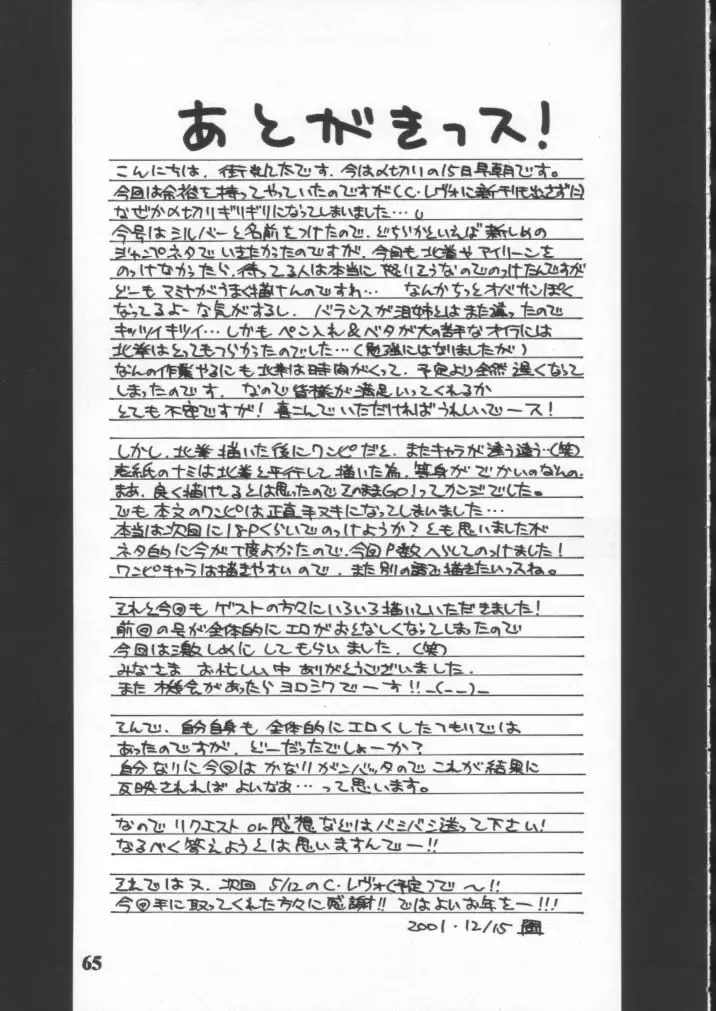 あとがきっス!
こんにちは、街乱太です。今は〆切りの15日早朝です。
今回は余裕を持ってやっていたのですが(C・レヴォに新刊も出さずに)
なぜか〆切りギリギリになってしまいました…
今号はミルバーと名前をつけたので、どちらかといえば新しめの
ジャンプネタでいきたかったのですが、今回も北斗やアイリーンを
のっけなかったら、待ってる人は本当に怒りそうなのでのっけたんですが
どーもマミヤがうまく描けんのですわ… なんかちっとオバサンぽく
なってるよーな気がするし、バランスが泪姉とはまた違ったので
キッツイキツイ…しかもペン入れ&ベタが大の苦手なオイラには
北斗はとってもつらかったのでした…(勉強にはなりましたが)
なんの作業やるにも北斗は時間がくって、予定より全然遅くなって
しまったのです。なので皆様が満足いってくれるか
とても不安ですが!喜こんでいただければうれしいでース!
しかし、北斗描いた後にワンピだと、またキャラが違う違う…(笑)
表紙のナミは北斗と平行して描いた為、等身がでかいのなんの。
まあ、良く描けてるとは思ったのでそのままGO!ってカンジでした。
でも本文のワンピは正直手ヌキになってしまいました…
本当は次回に18Pくらいでのっけようか?とも思いましたが
ネタ的に今が丁度よかったので、今回P数へらしてのっけました!
ワンピキャラは描きやすいので、また別の話で描きたいっスね。
それと今回もゲストの方々にいろいろ描いていただきました!
前回の号が全体的にエロがおとなしくなってしまったので
今回は激しめにしてもらいました、(笑)
みなさま お忙しい中ありがとうございました。
また機会があったらヨロシクでーす!!_(_ _)_
そんで、自分自身も全体的にエロくしたつもいでは
あったのですが、どーだったでしょーか?
自分なりに今回はかなりガンバッタのでこれが結果に
反映されればよいなあ…って思います。
なのでリクエスト or 感想などはバシバシ送って下さい!
なるべく答えようとは思いますんでー!!
それではヌ、次回 5/12のC・レヴォ(予定)で〜!!
今回手に取ってくれた方々に感謝!! ではよいお年をー!!!
2001・12/15
65